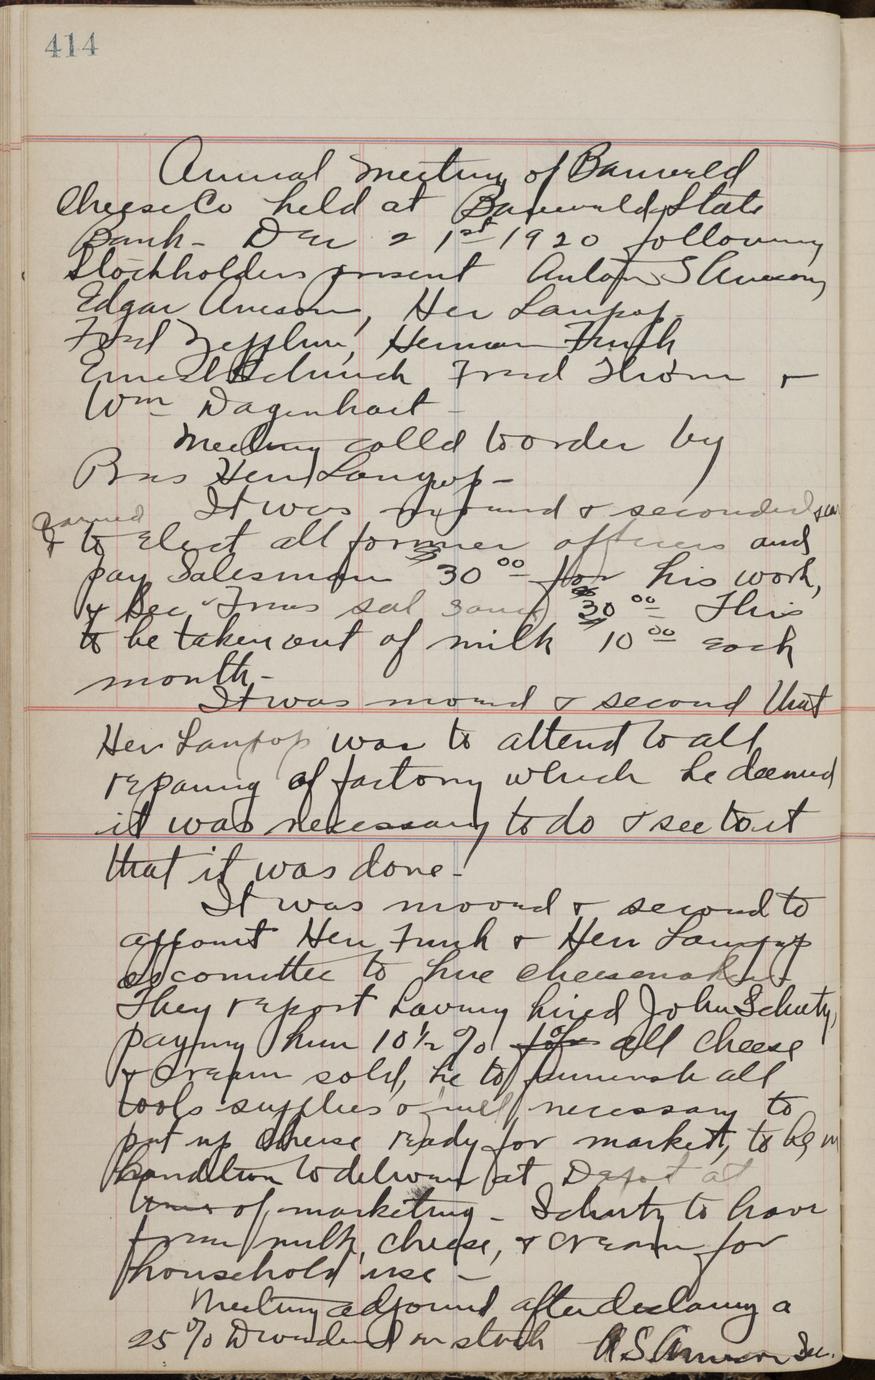 414
Annual Meeting of Bannwld
Cheese Co held at Bannwald State
Bank - Dec 21st 1920 following
Stockholders present Anton S Aneson,
Edgar Aneson, Her Langop
Fred Zepplin, Herman Funk
Ernest Schunch Fred Thom &
Wm Dagenhart -
Meeting called to order by
Pres Her Langop -
It was moved & seconded
& carried
to elect all former officers and
pay Salesman $30 00 for his work,
& Sec Treas sal same $30 00 This
to be taken out of milk 10 00 each
month -
It was moved & second that
Her Langop was to attend to all
reparing of factory which he deemed
it was necessary to do & see to it
that it was done -
It was moved & second to
appoint Her Funk & Her Langop
as comittee to hire cheesemaker -
They report having hired John Schutz,
paying him 10 1/2 % for all cheese
& cream sold, he to furnish all
tools supplies & fuel necessary to
put up cheese ready for market, to be in
kondition to deliver at Depot at
time of marketing - Schutz to have
free milk, cheese, & cream for
household use -
Meeting adjournd after declaring a
25% Dividend on stock A.S. Aneson Sec.